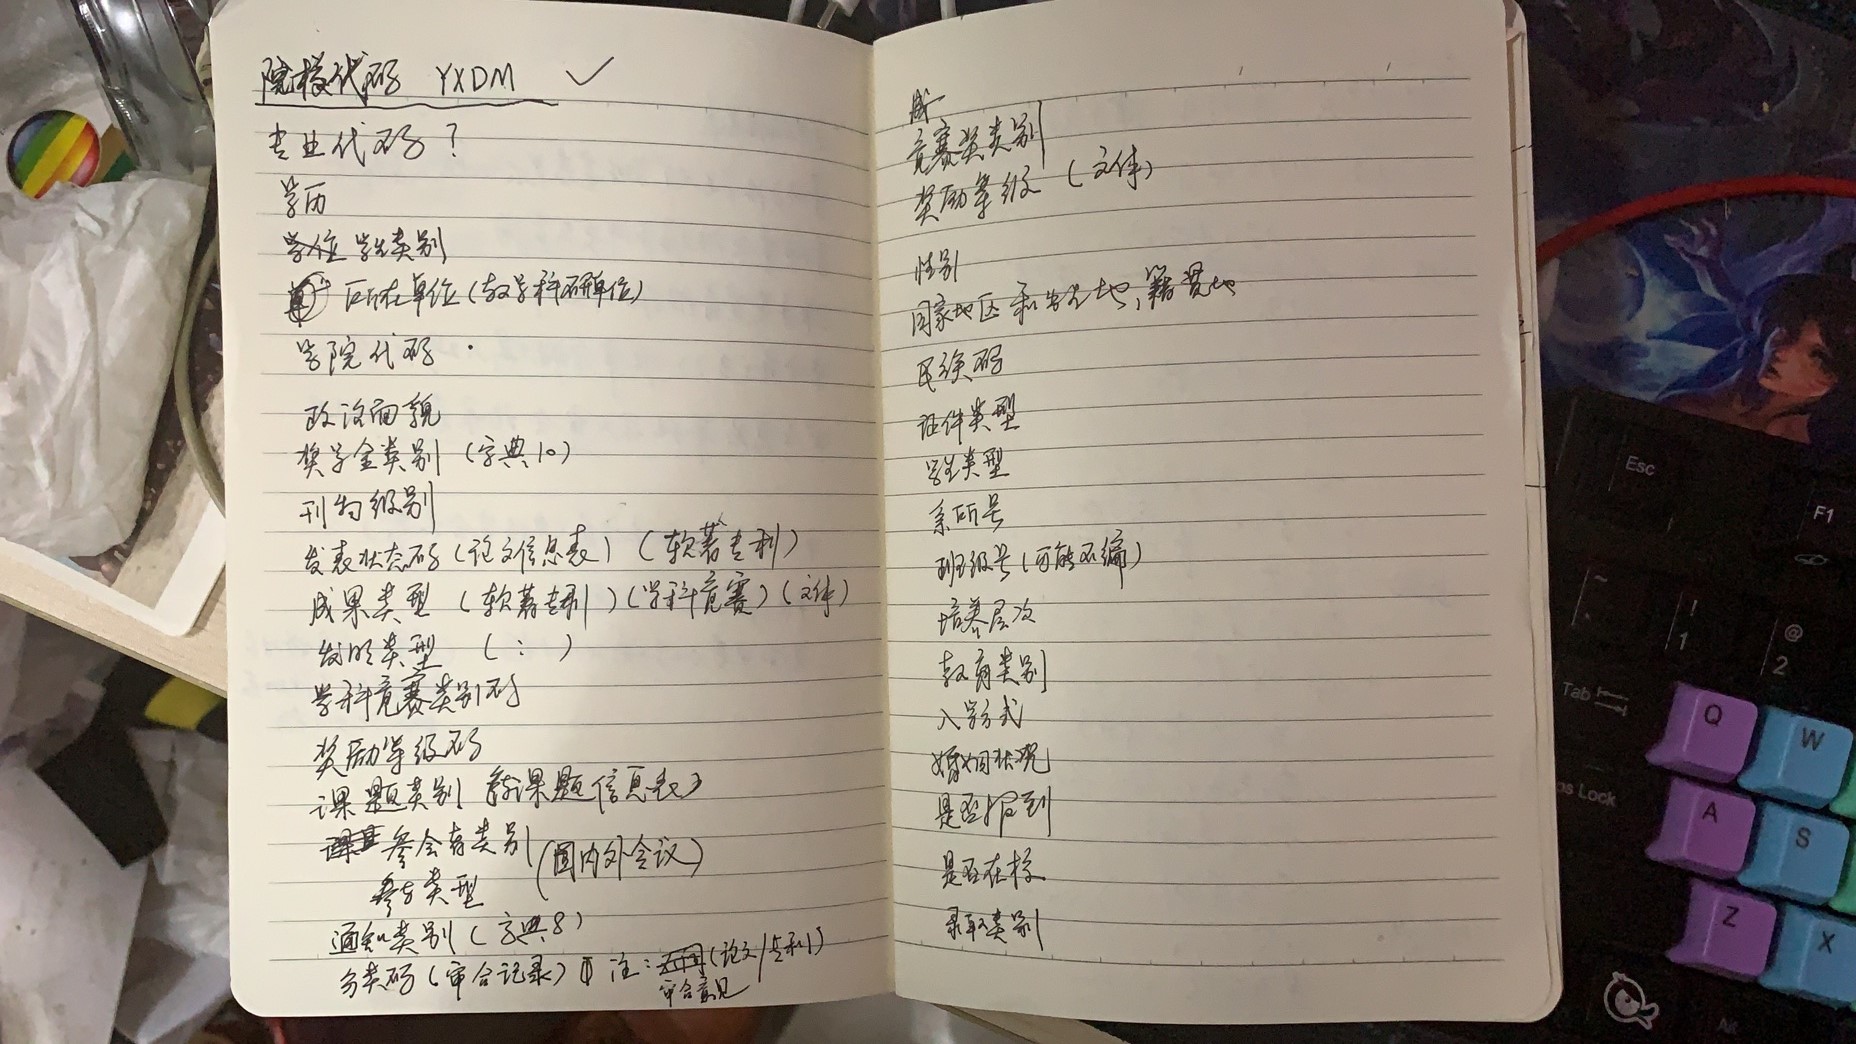 院校代码 YXDM ✓
专业代码？
学历
学位 学生类别
所在单位(教学科研单位)
学院代码
政治面貌
奖学金类别 (字典10)
刊物级别
发表状态码(论文信息表) (软著专利)
成果类型 (软著专利)(学科竞赛)(文体)
发明类型 ( : )
学科竞赛类别码
奖励等级码
课题类别 (课题信息表)
参会者类别
(国内外会议)
参与类型
通知类别(字典8)
分类码(审合记录) 注: (论文/专利)
审合意见
竞赛奖类别
奖励等级 (文体)
性别
国家地区和出生地,籍贯地
民族码
证件类型
学生类型
系所号
班级号(可能不编)
培养层次
教育类别
入学方式
婚姻状况
是否报到
是否在校
录取类别
Esc
F1
~
`
!
1
@
2
Tab
Q
W
Lock
A
S
Z
X
Alt